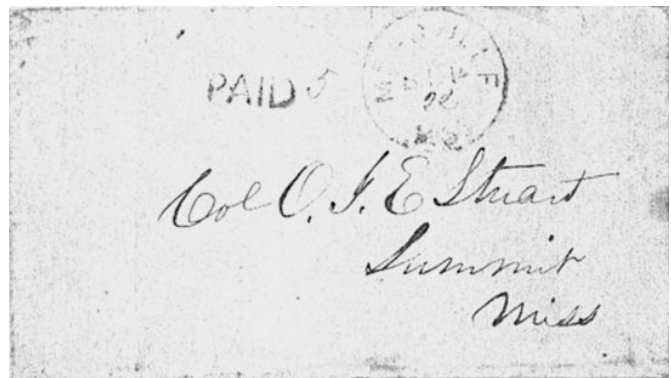 PAID 5
22
Col O. J. E Stuart
Summit
Miss